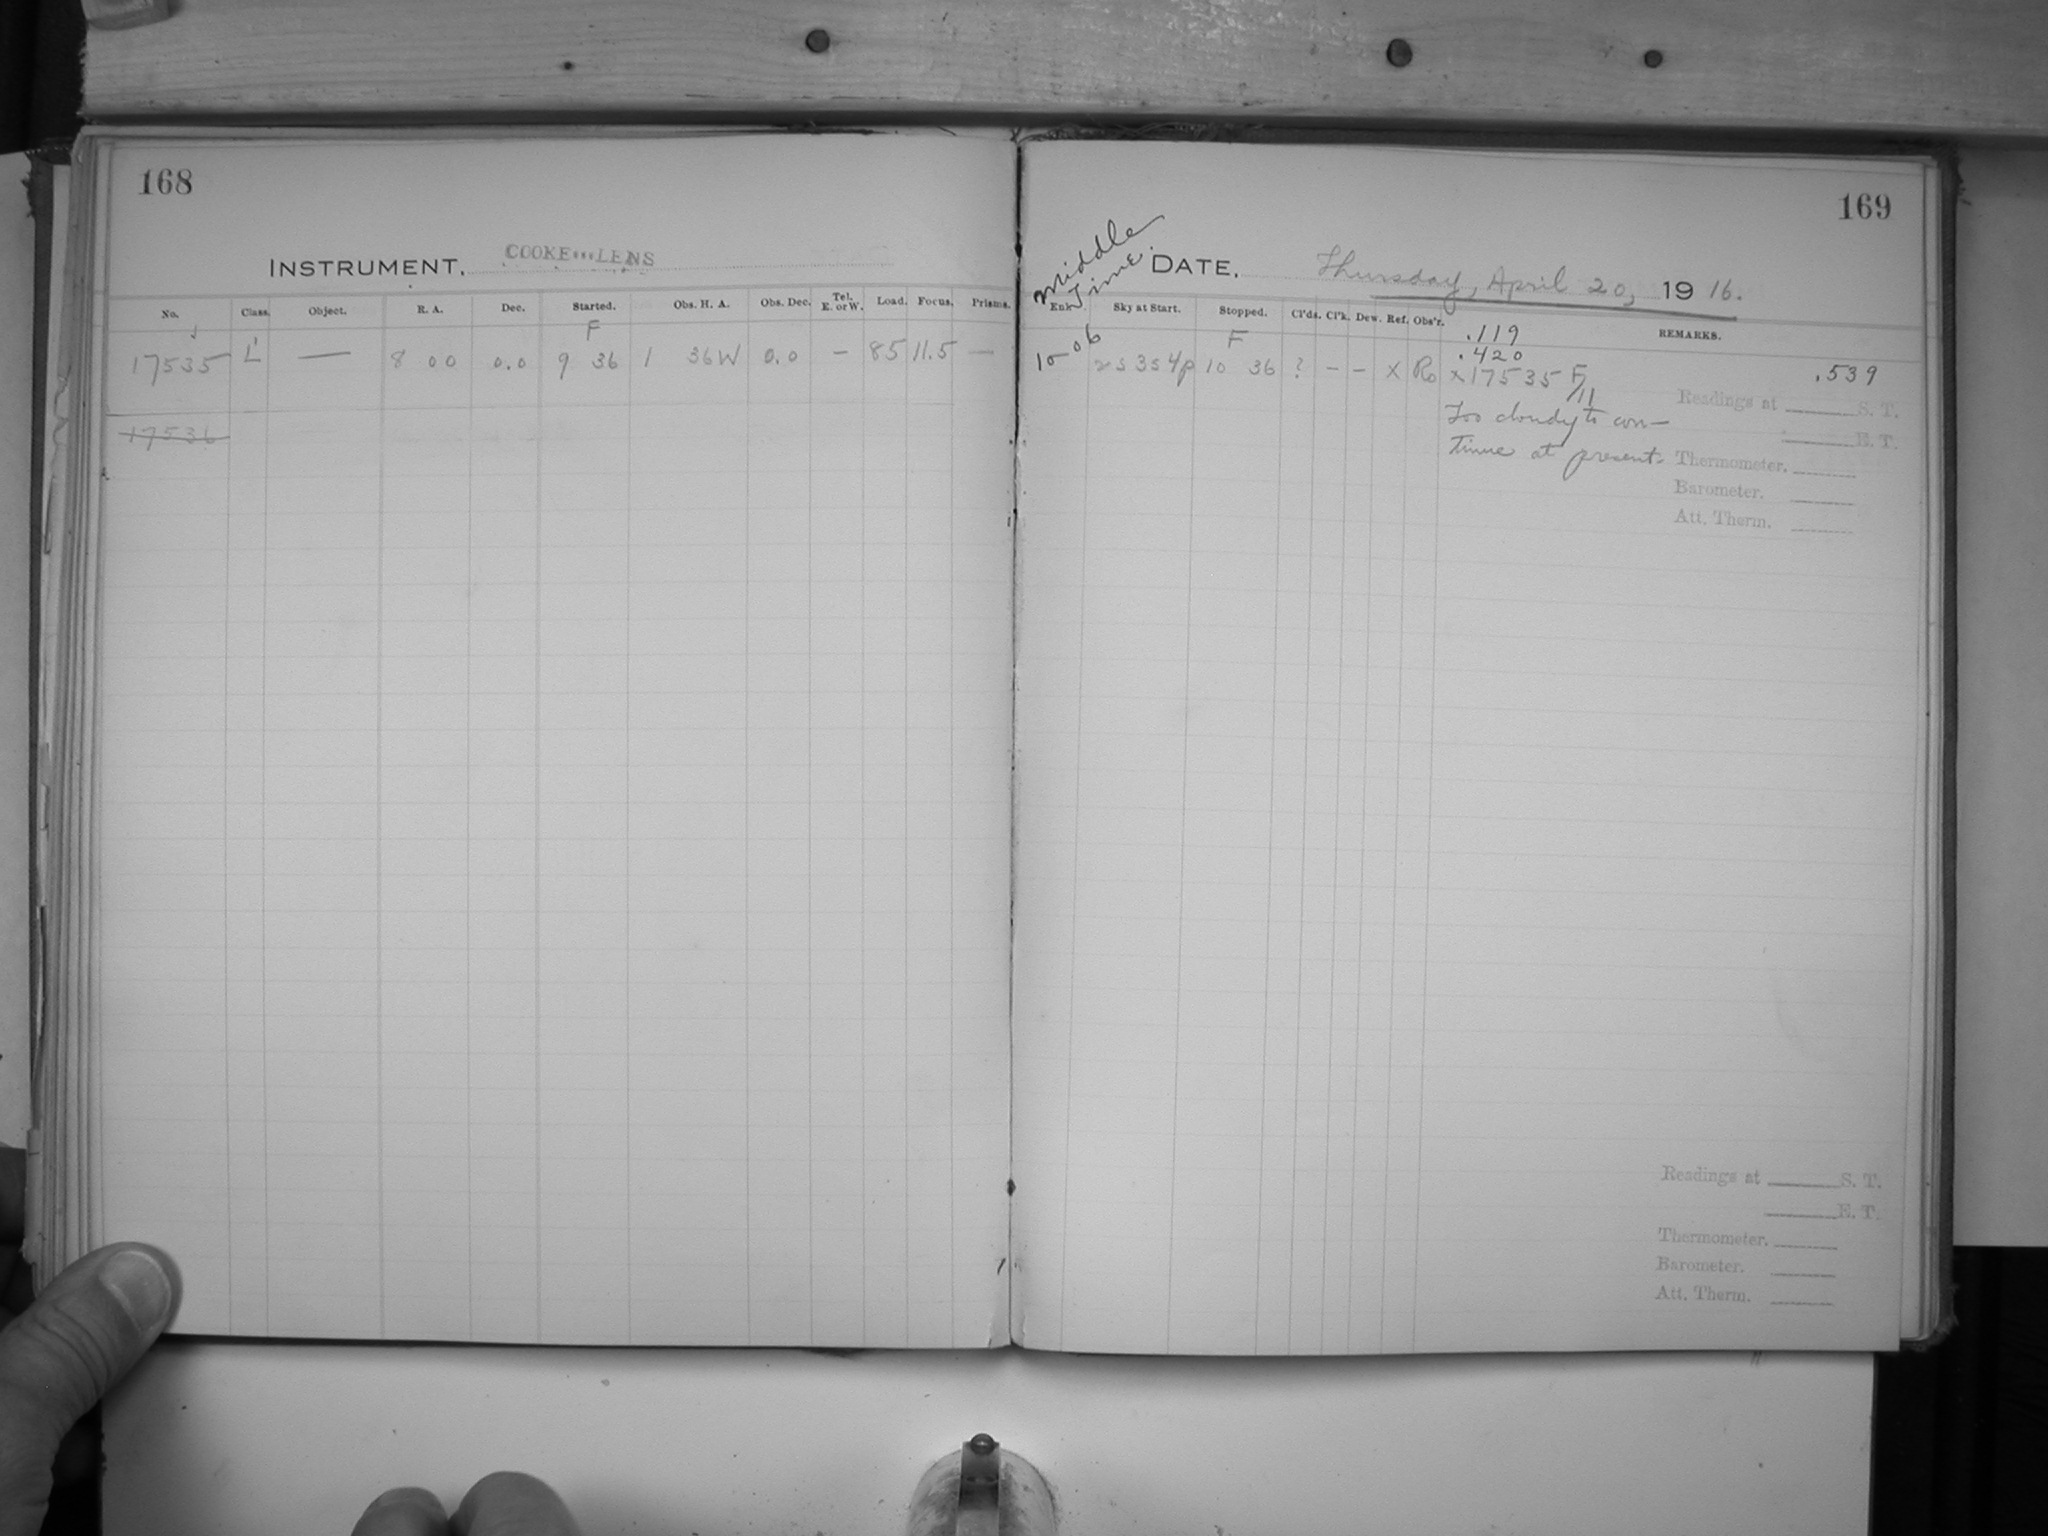 168
INSTRUMENT. COOKE LENS
No. Class. Object. R. A. Dec. Started. Obs. H. A. Obs. Dec. Tel. E. or W. Load. Focus. Prisms.
F
17535 L — 8 00 0.0 9 36 1 36W 0.0 — 85 11.5 —
17536
169
Middle
Time
DATE. Thursday, April 20, 1916.
Sky at Start. Stopped. Cl'ds. Cl'k. Dew. Ref. Obs'r. REMARKS.
.119
F .420
10 06 10 36 ? — — X Ro x17535 F/11 .539
Too cloudy to con-
tinue at present.
Readings at S. T.
E. T.
Thermometer.
Barometer.
Att. Therm.
Readings at S. T.
E. T.
Thermometer.
Barometer.
Att. Therm.